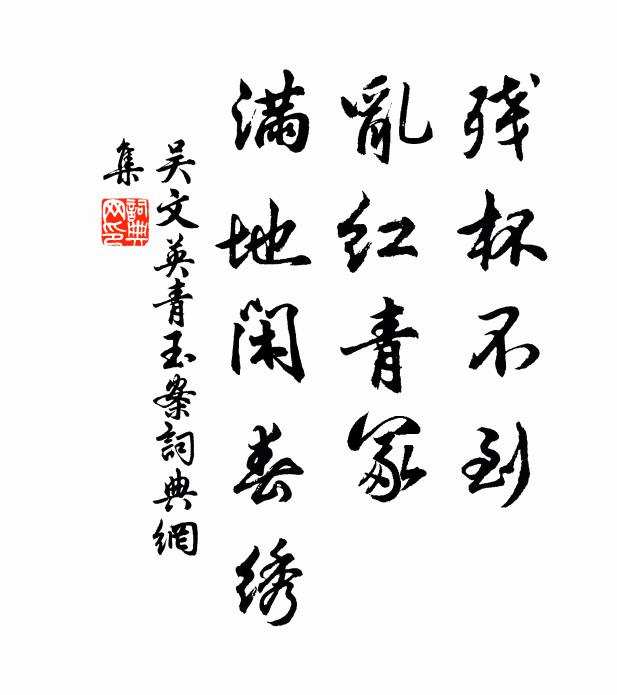 残杯不到
亂红青冢
满地闲春绣
吴文英青玉案詞典網
集
詞典网印